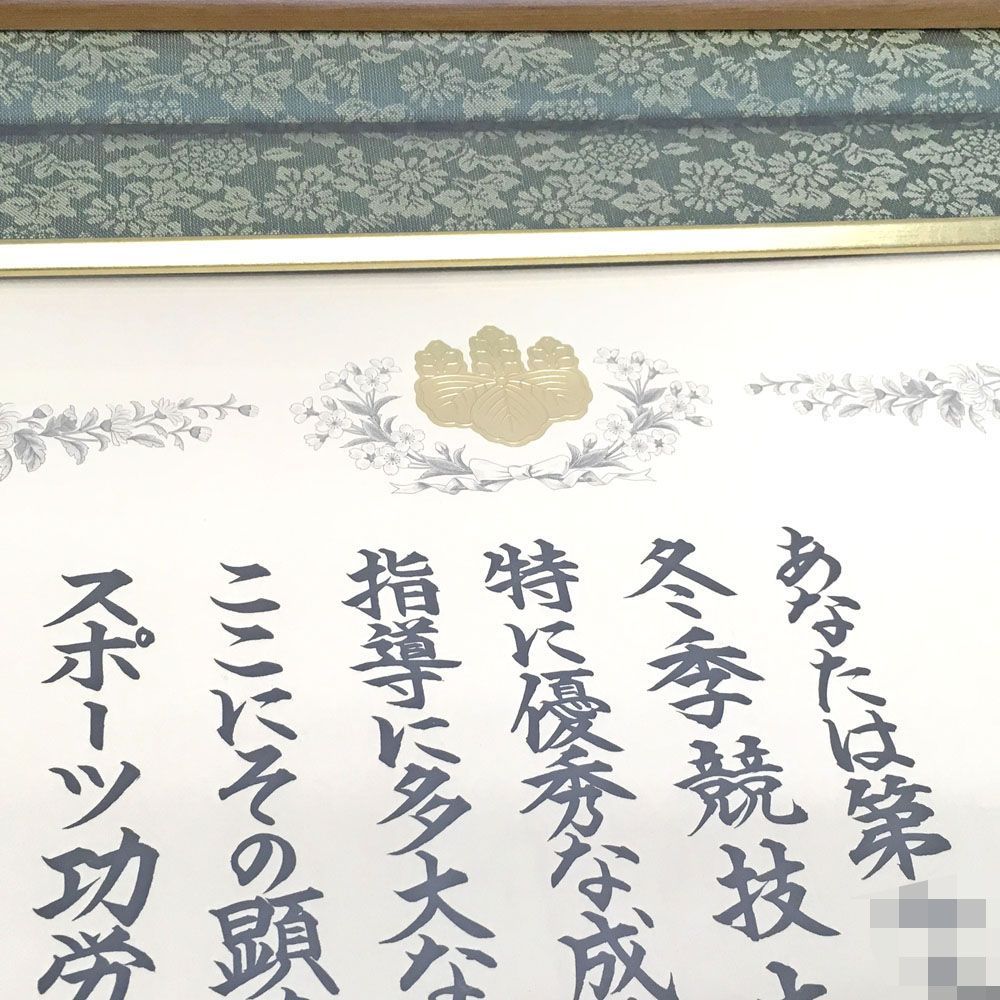 あなたは第
冬季競技
特に優秀な成
指導に多大な
ここにその顕
スポーツ功労